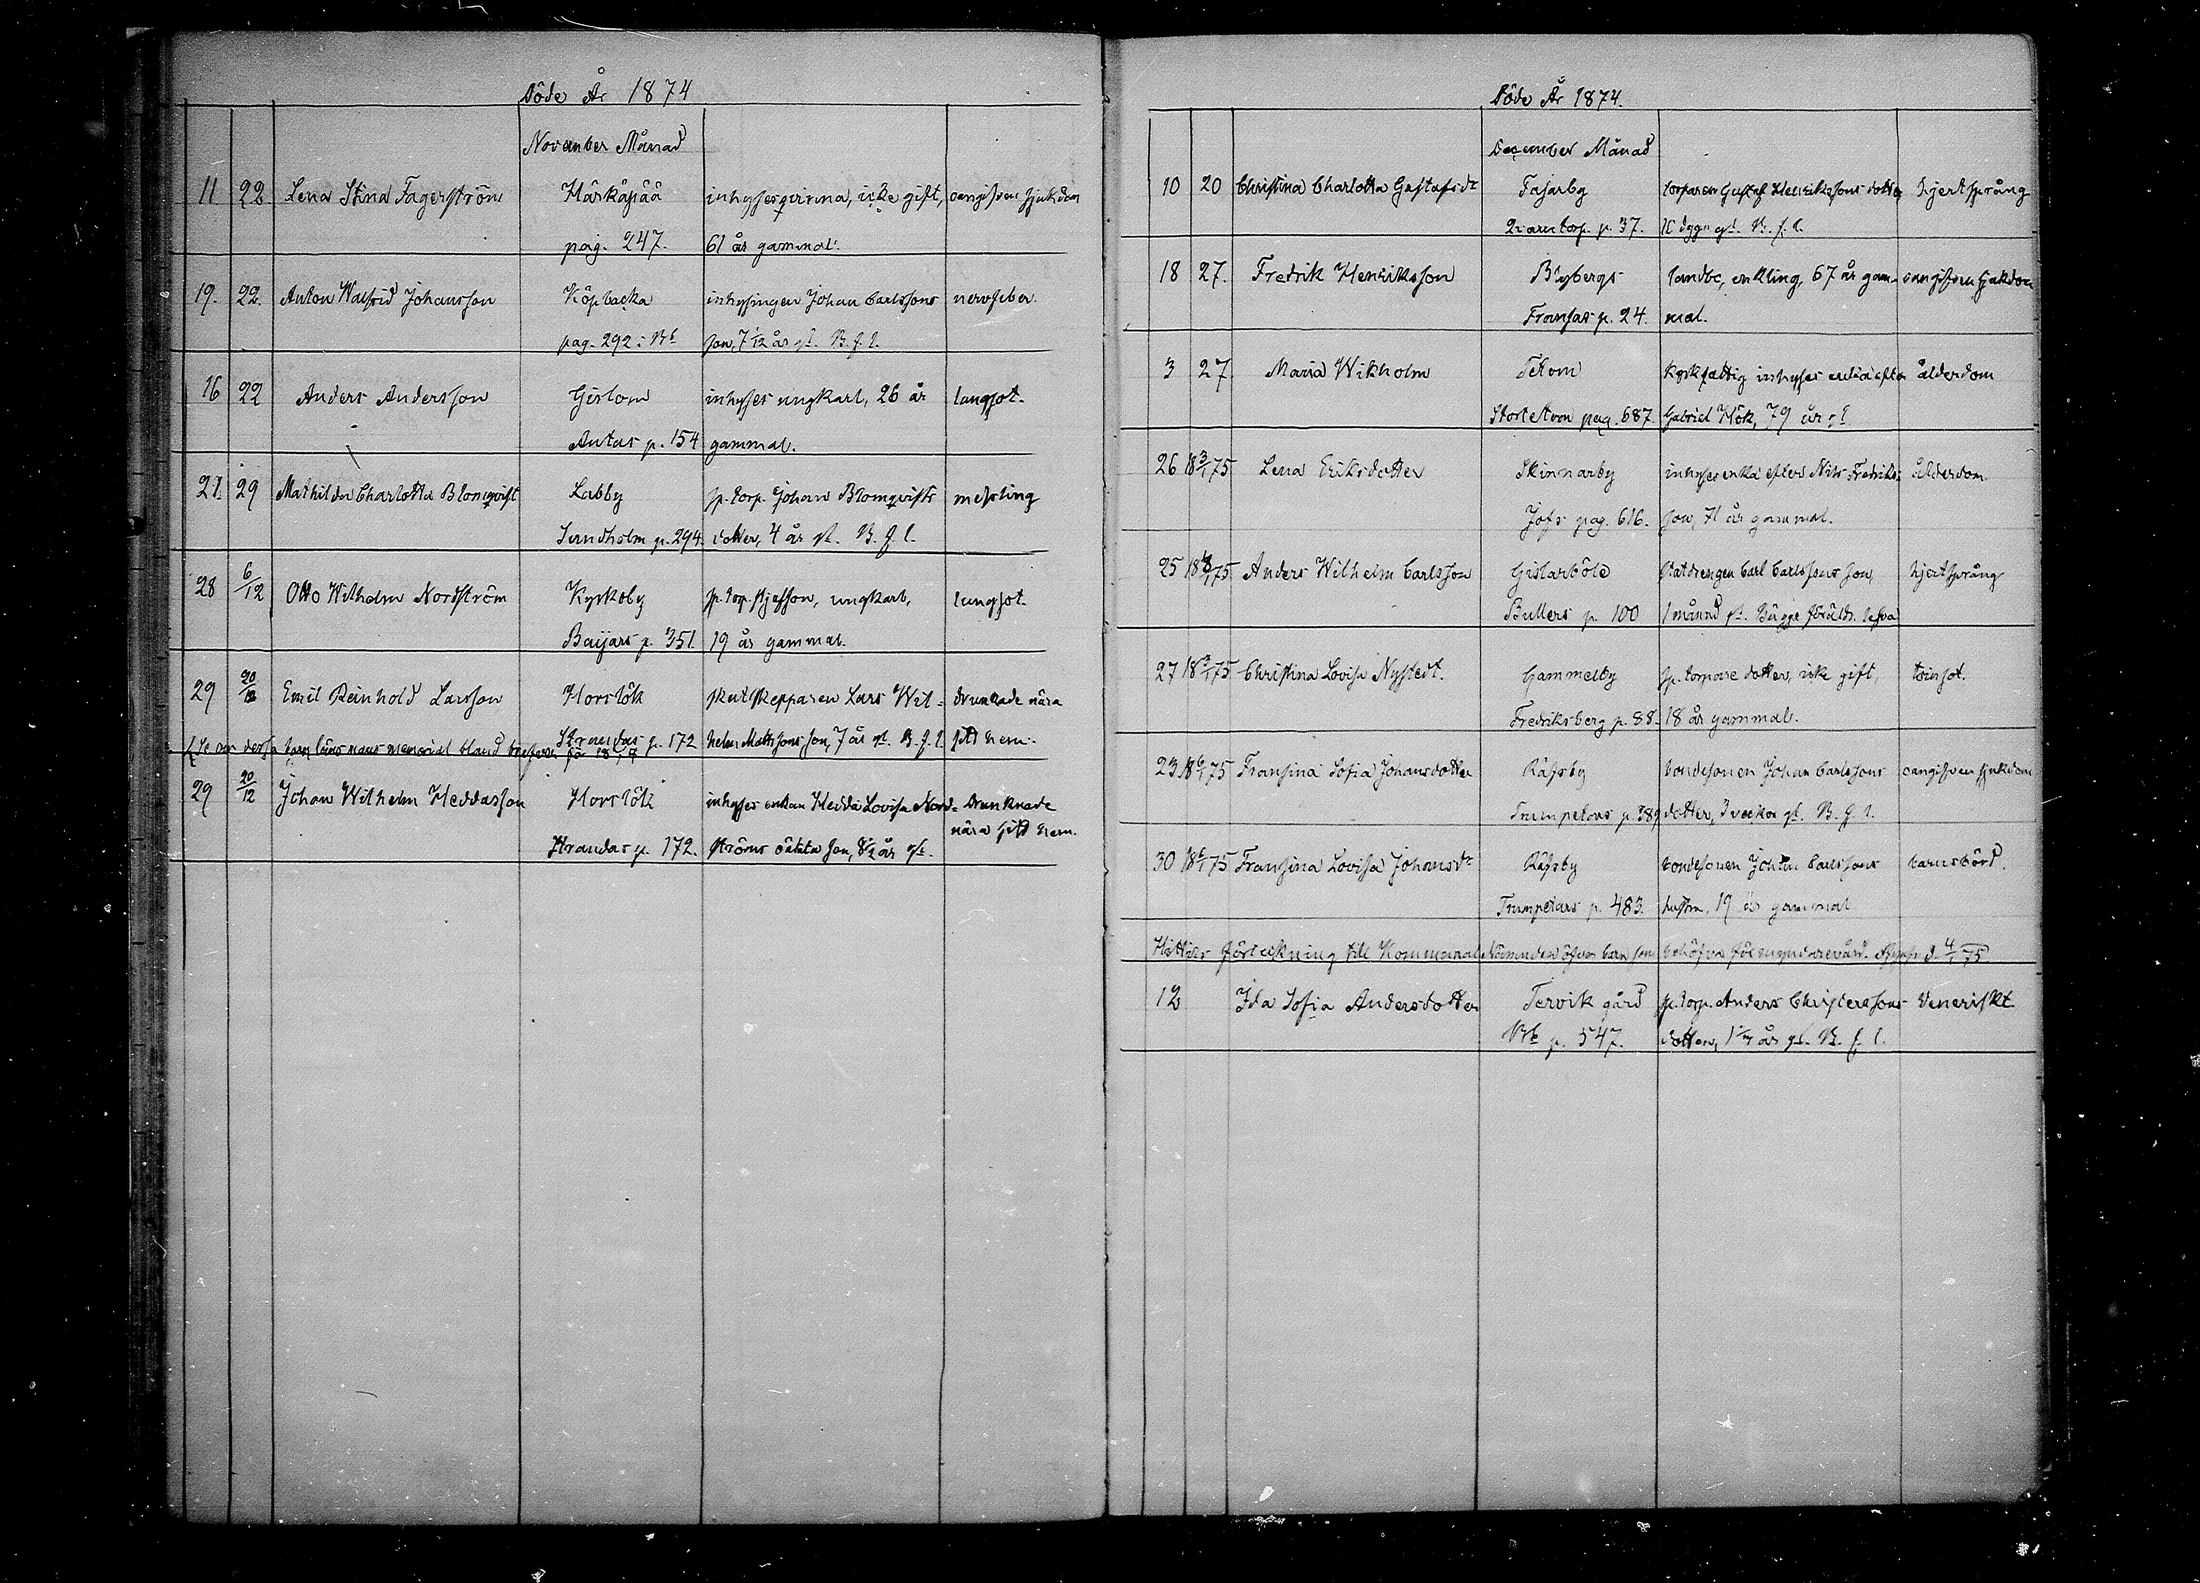 Döde År 1874
November Månad
11 22 Lena Stina Fagerström Härkäpää inhysesqvinna, icke gift, oangifven sjukdom
pag. 247. 61 år gammal.
19. 22. Anton Walfrid Johansson Köpbacka inhysingen Johan Carlssons nervfeber.
pag. 292: son, 7 1/12 år gl. B. f. l.
16 22 Anders Andersson Gislom inhyses ungkarl, 26 år lungsot.
Antas p. 154 gammal.
21. 29 Mathilda Charlotta Blomqvist Labby sp. torp. Johan Blomqvists messling
Sundholm p. 294. dotter, 4 år gl. B. f. l.
28 6/12 Otto Wilhelm Nordström Kyrkoby sp. torp. styfson, ungkarl, lungsot.
Baijars p. 351. 19 år gammal.
29 20/12 Emil Reinhold Larsson Horslök skutskepparen Lars Wil- drunknade nära
Strandas p. 172 helm Mattssons son, 7 år gl. B. f. l. sitt hem.
Se om dessa memorial bland
29 20/12 Johan Wilhelm Heddasson Horslök inhyses enkan Hedda Lovisa Nord- Drunknade
nära sitt hem.
Strandas p. 172. ströms oäkta son, 8 1/2 år gl.
Döde År 1874.
December Månad
10 20 Christina Charlotta Gustafsdr Fasarby torparen Gustaf Henrikssons dotter hjertsprång
Qvarntorp. p. 37. 10 dygn gl. B. f. l.
18 27. Fredrik Henriksson Bybergs landbo, enkling, 67 år gam- oangifven sjukdom
Fransas p. 24. mal.
3 27. Maria Wikholm Tetom kyrkfattig inhyses enka efter ålderdom
Stortetom pag. 687. Gabriel Hök, 79 år gl
26 18 3/1 75 Lena Eriksdotter Skinnarby inhysesenka efter Nils Fredriks- ålderdom
Jofs pag. 616. son, 71 år gammal.
25 Anders Wilhelm Carlsson Gislarböle statdrengen Carl Carlssons son, hjertsprång
Bullers p. 100 1 månad gl. Bägge föräldr. lefva
27 18 3/1 75 Christina Lovisa Nystedt. Gammelby sp. torpare dotter, icke gift, trånsot.
Fredriksberg p. 88. 18 år gammal.
23 18 6/1 75 Fransina Sofia Johansdotter Räfsby bondesonen Johan Carlssons oangifven sjukdom
Trumpetars p. 389 dotter, 3 veckor gl. B. f. l.
30 18 6/1 75 Fransina Lovisa Johansdr Räfsby bondesonen Johan Carlssons barnsbörd.
Trumpetars p. 483. hustru, 19 år gammal
Hittills förteckning till Kommunal Nämnden öfver barn som behöfva förmyndarevård. d. 4/1 75
12 Ida Sofia Andersdotter Tervik gård sp. torp. Anders Christerssons Veneriskt
p. 547. dotter, år gl. B. f. l.